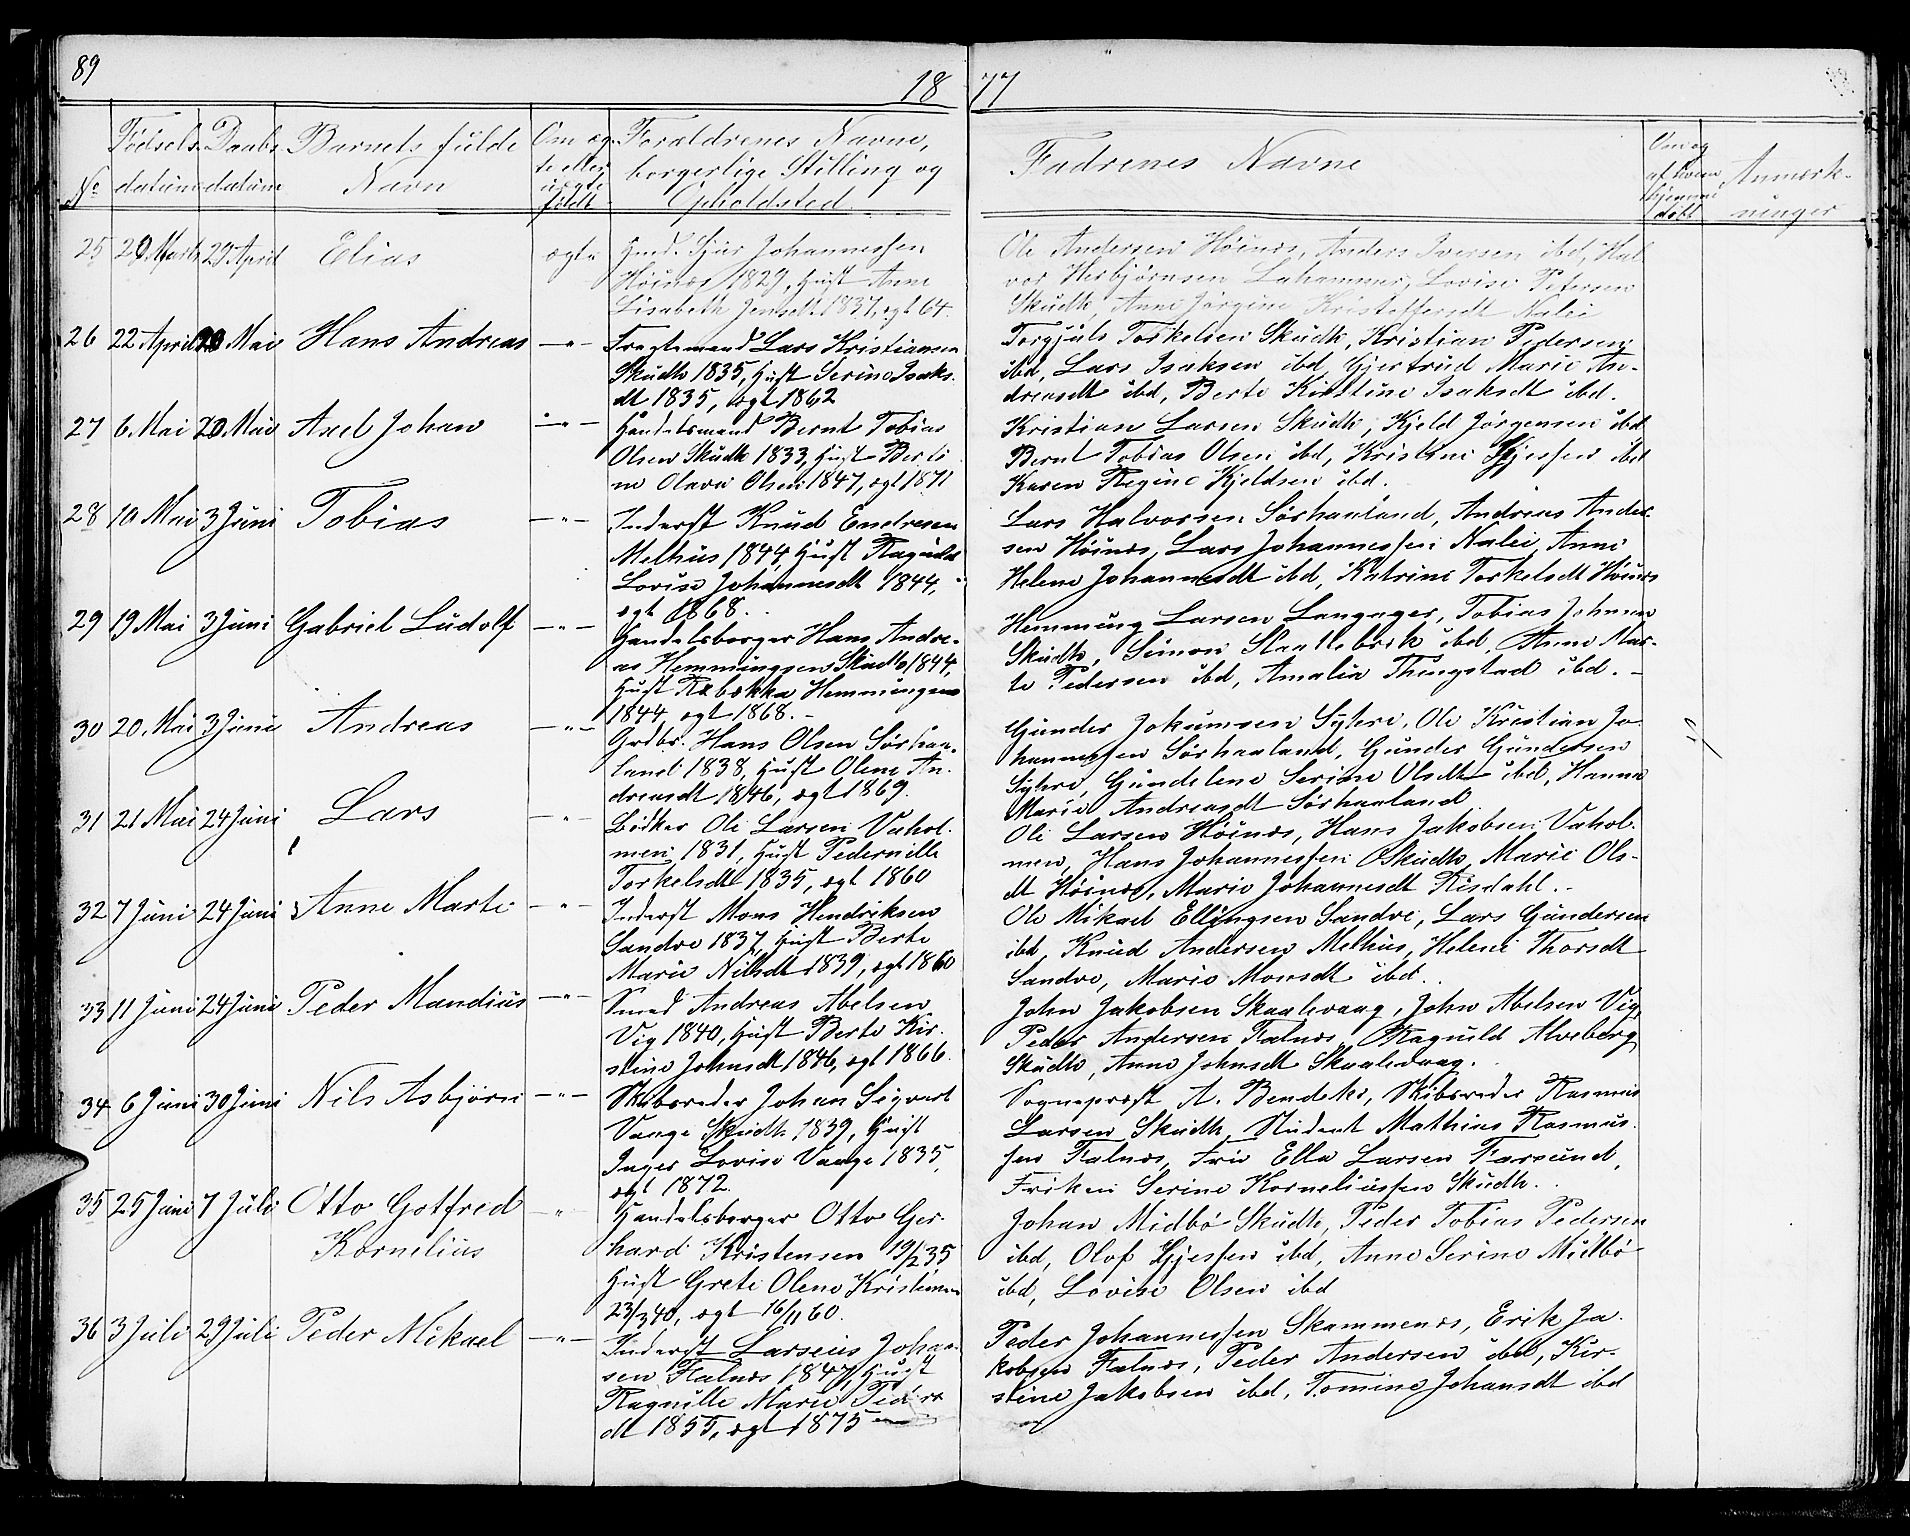 89
18 77
No
Fødsels-
datum
Daabs
datum
Barnets fulde
Navn
Om æg-
te eller
uægte
født
Forældrenes Navne,
borgerlige Stilling og
Opholdsted
Fadrenes Navne
døbt
Anmærk-
ninger
25 29 Marts 29 April Elias ægte
Gmd. Sjur Johannessen
Høinæs 1829, Hust Anne
Lisabeth Jensdt. 1837, egt 64.
Ole Andersen Høinæs, Anders Iversen ibd, Hal
vor Herbjørnsen Lahammer, Lovise Petersen
Skudh, Anne Jørgine Kristoffersdt Nalei
26 22 April 20 Mai Hans Andreas —„—
Fragtemand Lars Kristiansen
Skudh 1835, Hust Serine Isaks.
dt 1835, egt 1862
Torgjuls Torkelsen Skudh, Kristian Pedersen
ibd, Lars Isaksen ibd, Gjertrud Marie An-
dreasdt ibd, Berte Kirstine Isaksdt ibd.
27 6 Mai 20 Mai Axel Johan —„—
Handelsmand Bernt Tobias
Olsen Skudh 1833, Hust Berte
ne Olava Olsen 1847, egt 1871
Kristian Larsen Skudh, Kjeld Jørgensen ibd
Bernt Tobias Olsen ibd, Kristine Gjessen ibd
Karen Regine Kjeldsen ibd.
28 10 Mai 3 Juni Tobias —„—
Inderst Knud Endresen
Melhus 1844, Hust Ragnild
Lovise Johannesdt 1844,
egt 1868.
Lars Halvorsen Sørhaaland, Andreas Ander-
sen Høinæs, Lars Johannessen Nalei, Anne
Helene Johannesdt ibd, Katrine Torkelsdt Høinæs
29 19 Mai 3 Juni Gabriel Ludolf —„—
Handelsborger Hans Andre-
as Hemmingsen Skudh 1844,
Hust Rebekka Hemmingsen
1844 egt 1868. -
Hemming Larsen Langager, Tobias Johnsen
Skudh, Simon Slaattebrek ibd, Anne Mar-
te Pedersen ibd, Amalia Thingstad ibd. -
30 20 Mai 3 Juni Andreas —„—
Grdbr. Hans Olsen Sørhaa-
land 1838, Hust Olene An-
dreasdt 1846, egt 1869.
Gunder Jokumsen Syhre, Ole Kristian Jo-
hannessen Sørhaaland, Gunder Gundersen
Syhre, Gundelene Serine Olsdt ibd, Hanna
Marie Andreasdt Sørhaaland
31 21 Mai 24 Juni Lars —„—
Bødker Ole Larsen Vahol-
men 1831, Hust Pedernille
Torkelsdt 1835, egt 1860
Ole Larsen Høinæs, Hans Jakobsen Vahol-
men, Hans Johannessen Skudh, Marie Ols-
dt Høinæs, Marie Johannesdt Risdahl. -
32 7 Juni 24 Juni Anne Marte —„—
Inderst Mons Hendriksen
Sandve 1837, Hust Berte
Marie Nilsdt 1839, egt 1860
Ole Mikael Ellingsen Sandve, Lars Gundersen
ibd, Knud Andersen Melhus, Helene Thorsdt
Sandve, Marie Monsdt ibd.
33 11 Juni 24 Juni Peder Mandius —„—
Smed Andreas Abelsen
Vig 1840, Hust Berte Kir-
stine Johnsdt 1846, egt 1866.
John Jakobsen Skaalevaag, John Abelsen Vig,
Peder Andersen Falnæs, Ragnild Alveberg
Skudh, Anne Johnsdt Skaalevaag.
34 6 Juni 30 Juni Nils Asbjørn —„—
Skibsreder Johan Sigvart
Vaage Skudh 1839, Hust
Inger Lovise Vaage 1835,
egt 1872.
Sogneprest A. Bendeke, Skibsreder Rasmus
Larsen Skudh, Student Mathias Rasmus-
sen Falnæs, Fru Ella Larsen Farsund,
Frøken Serine Korneliussen Skudh.
35 25 Juni 7 Juli Otto Gotfred —„—
Kornelius
Handelsborger Otto Ger-
hard Kristensen 19/2 35
Hust Grete Olene Kristensen
23/3 40, egt 16/11 60.
Johan Midbø Skudh, Peder Tobias Pedersen
ibd, Olof Gjessen ibd, Anne Serine Midbø
ibd, Lovise Olsen ibd
36 3 Juli 29 Juli Peder Mikael —„—
Inderst Larseus Johan-
sen Falnæs 1847, Hust
Ragnille Marie Peders
dt 1855, egt 1875
Peder Johannessen Skammenæs, Erik Ja-
kobsen Falnæs, Peder Andersen ibd, Kir-
stine Jakobsen ibd, Tomine Johansdt ibd